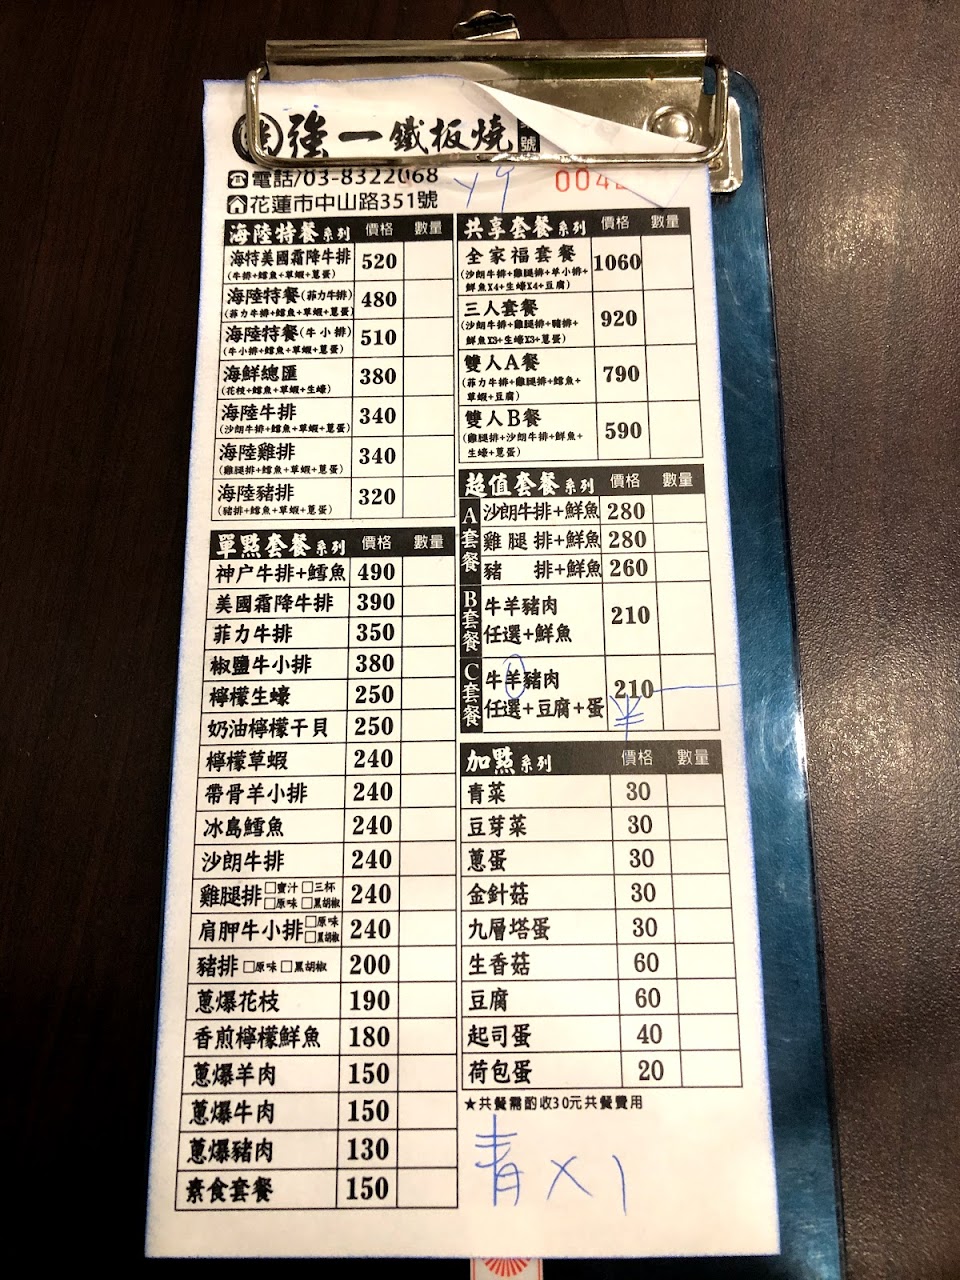 強一鐵板燒
號
電話/03-8322068
花蓮市中山路351號
海陸特餐系列 價格 數量
海特美國霜降牛排 520
(牛排+鱈魚+草蝦+蔥蛋)
海陸特餐(菲力牛排) 480
(菲力牛排+鱈魚+草蝦+蔥蛋)
海陸特餐(牛小排) 510
(牛小排+鱈魚+草蝦+蔥蛋)
海鮮總匯 380
(花枝+鱈魚+草蝦+生蠔)
海陸牛排 340
(沙朗牛排+鱈魚+草蝦+蔥蛋)
海陸雞排 340
(雞腿排+鱈魚+草蝦+蔥蛋)
海陸豬排 320
(豬排+鱈魚+草蝦+蔥蛋)
單點套餐系列 價格 數量
神户牛排+鱈魚 490
美國霜降牛排 390
菲力牛排 350
椒鹽牛小排 380
檸檬生蠔 250
奶油檸檬干貝 250
檸檬草蝦 240
帶骨羊小排 240
冰島鱈魚 240
沙朗牛排 240
雞腿排 □蜜汁 □三杯 □原味 □黑胡椒 240
肩胛牛小排 □原味 □黑胡椒 240
豬排 □原味 □黑胡椒 200
蔥爆花枝 190
香煎檸檬鮮魚 180
蔥爆羊肉 150
蔥爆牛肉 150
蔥爆豬肉 130
素食套餐 150
共享套餐系列 價格 數量
全家福套餐 1060
(沙朗牛排+雞腿排+羊小排+
鮮魚X4+生蠔X4+豆腐)
三人套餐 920
(沙朗牛排+雞腿排+豬排+
鮮魚X3+生蠔X3+蔥蛋)
雙人A餐 790
(菲力牛排+雞腿排+鱈魚+
草蝦+豆腐)
雙人B餐 590
(雞腿排+沙朗牛排+鮮魚+
生蠔+蔥蛋)
超值套餐系列 價格 數量
A套餐
沙朗牛排+鮮魚 280
雞腿排+鮮魚 280
豬排+鮮魚 260
B套餐
牛羊豬肉
任選+鮮魚 210
C套餐
牛羊豬肉
任選+豆腐+蛋 210
羊
加點系列 價格 數量
青菜 30
豆芽菜 30
蔥蛋 30
金針菇 30
九層塔蛋 30
生香菇 60
豆腐 60
起司蛋 40
荷包蛋 20
★共餐需酌收30元共餐費用
青X1